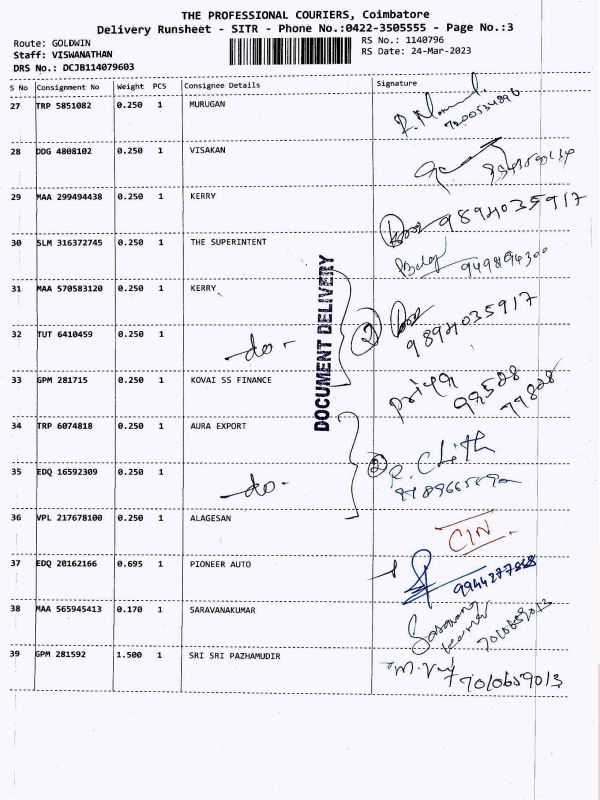 THE PROFESSIONAL COURIERS, Coimbatore
Delivery Runsheet - SITR - Phone No.:0422-3505555 - Page No.:3
Route: GOLDWIN
RS No.: 1140796
Staff: VISWANATHAN
RS Date: 24-Mar-2023
DRS No.: DCJB114079603
S No Consignment No Weight PCS Consignee Details Signature
27 TRP 5851082 0.250 1 MURUGAN
28 DDG 4808102 0.250 1 VISAKAN
29 MAA 299494438 0.250 1 KERRY 9894035917
30 SLM 316372745 0.250 1 THE SUPERINTENT
31 MAA 570583120 0.250 1 KERRY 2 9894035917
32 TUT 6410459 0.250 1 -do-
33 GPM 281715 0.250 1 KOVAI SS FINANCE priya 99528 79828
DOCUMENT DELIVERY
34 TRP 6074818 0.250 1 AURA EXPORT
35 EDQ 16592309 0.250 1 -do- 2
36 VPL 217678100 0.250 1 ALAGESAN CIN
37 EDQ 20162166 0.695 1 PIONEER AUTO
38 MAA 565945413 0.170 1 SARAVANAKUMAR 7010659013
39 GPM 281592 1.500 1 SRI SRI PAZHAMUDIR 7010659013